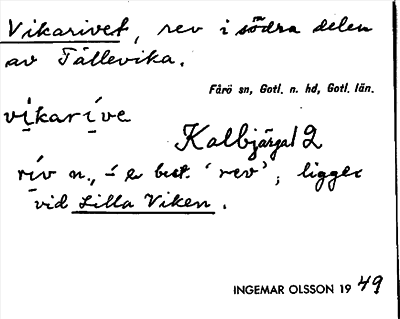 Vikarivet, rev i södra delen
av Tällevika.
Fårö sn, Gotl. n. hd, Gotl. län.
vikaríve
Kalbjärga 1 2
rív n., -ĕ best. 'rev'; ligger
vid Lilla Viken.
INGEMAR OLSSON 19 49